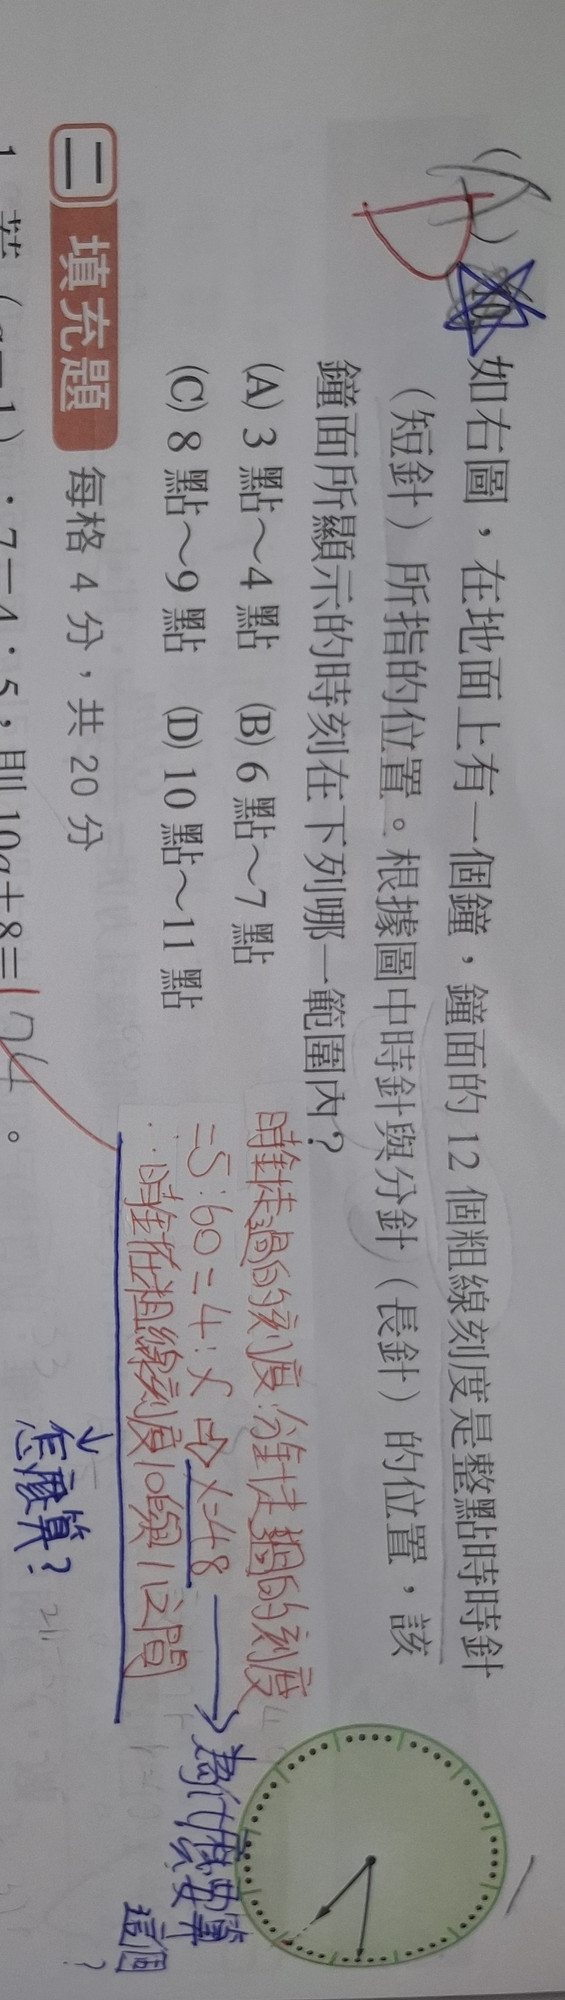 (A)
D
10. 如右圖，在地面上有一個鐘，鐘面的 12 個粗線刻度是整點時時針
（短針）所指的位置。根據圖中時針與分針（長針）的位置，該
鐘面所顯示的時刻在下列哪一範圍內？
(A) 3 點～4 點 (B) 6 點～7 點
(C) 8 點～9 點 (D) 10 點～11 點
時針走過的刻度:分針走過的刻度
=5:60=4:x ⇨ x=48
∴時針在粗線刻度10與11之間
為什麼要算
這個?
↓
怎麼算?
二 填充題 每格 4 分，共 20 分
，則 10a＋8＝174。